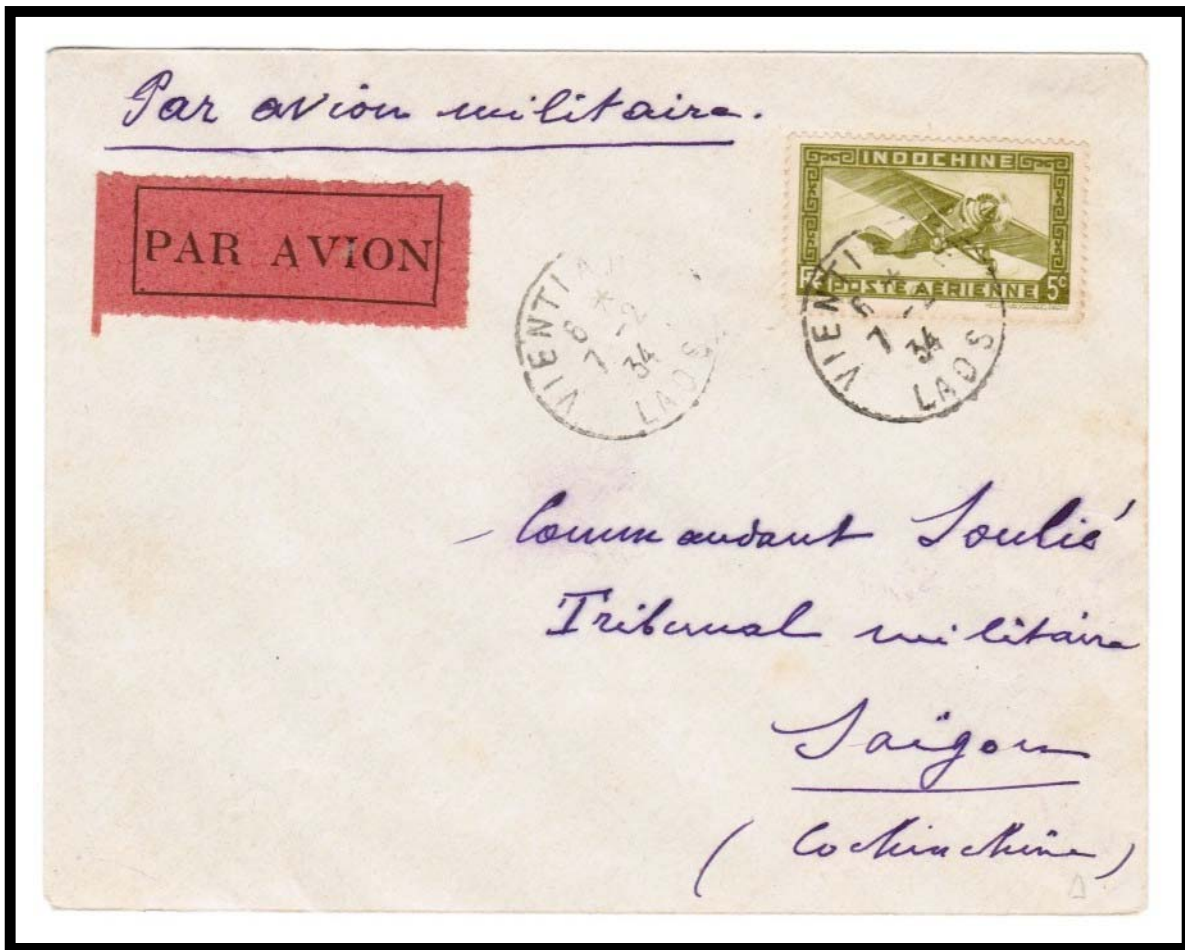 Par avion militaire.
PAR AVION
INDOCHINE
POSTE AÉRIENNE 5c
VIENTI
8 *
7 -2
34
LAOS
VIENTI
*
7
34
LAOS
Commandant Soulié
Tribunal militaire
Saïgon
(Cochinchine)